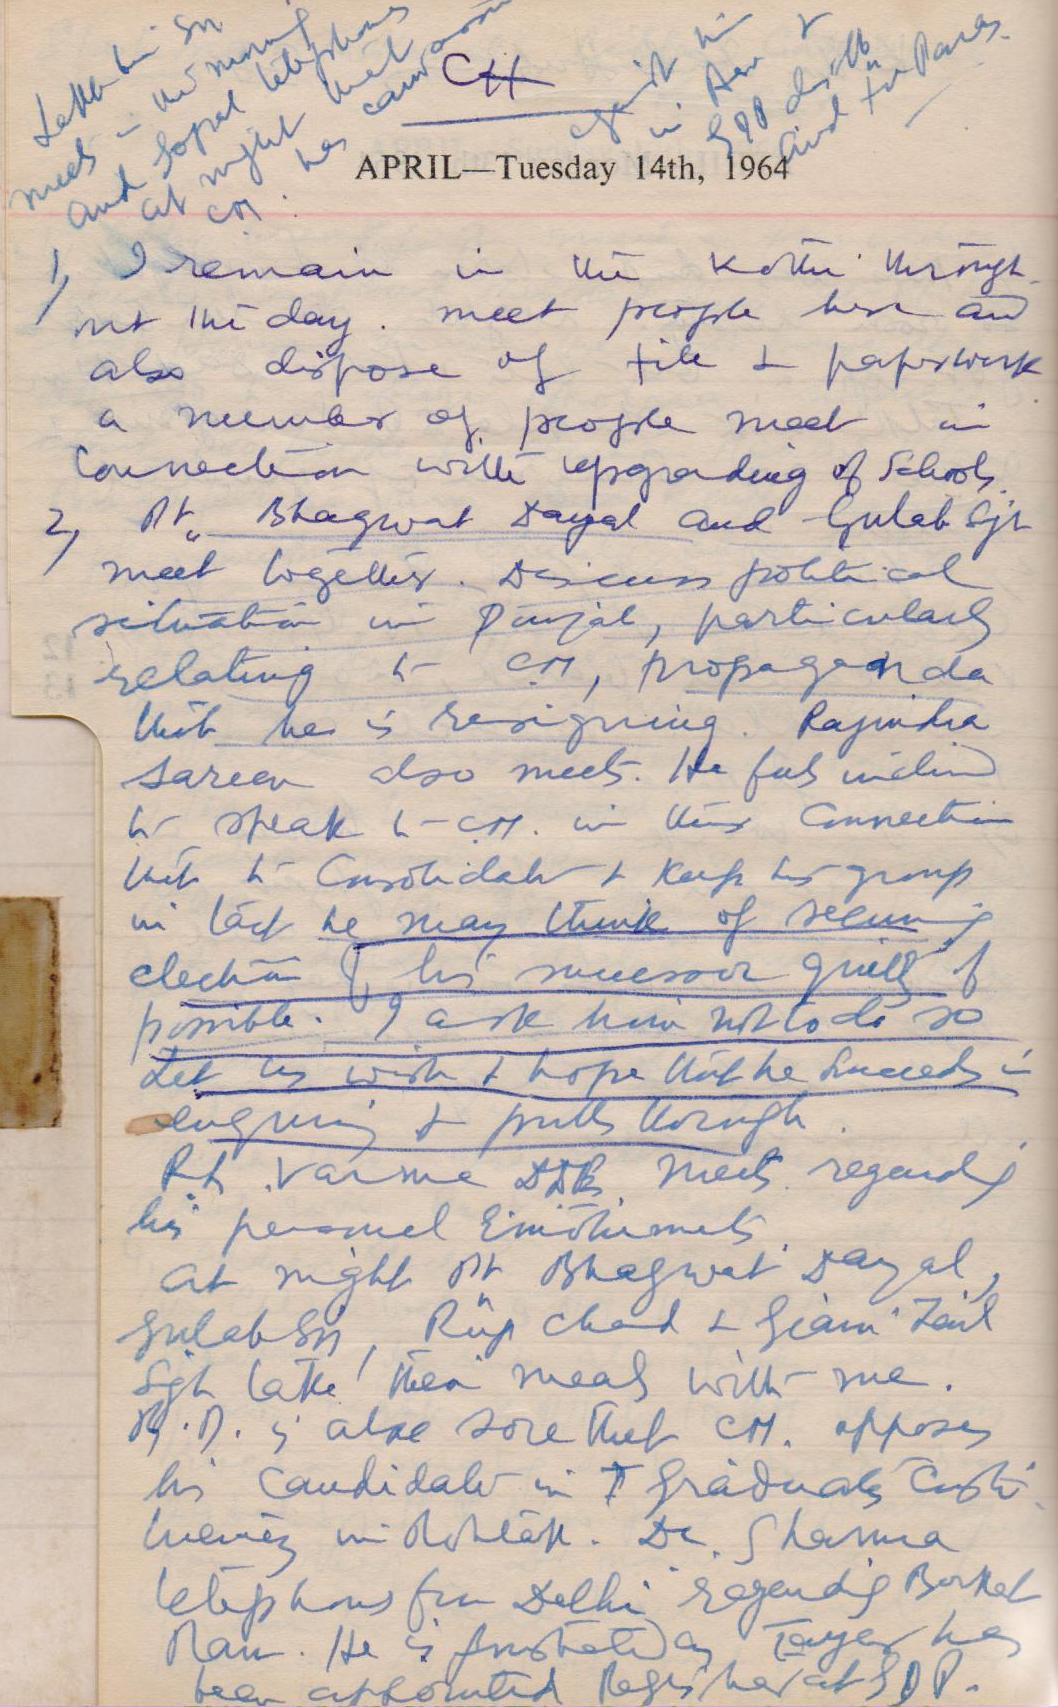 meets in the morning
and Gopal telephones
at night that
CM has
CH
APRIL—Tuesday 14th, 1964
1, I remain in the Kothi through
out the day. meet people here and
also dispose of file & paperwork
a number of people meet in
connection with upgrading of Schools.
2, Pt. Bhagwat Dayal and Gulab Sgh
meet together. Discuss political
situation in Punjab, particularly
relating to CM, propaganda
that he is resigning. Rajindra
Sareen also meets. He feels inclined
to speak to CM. in this connection
that to consolidate & keep his group
in tact he may think of securing
election of his successor quietly if
possible. I ask him not to do so
Let us wish & hope that he succeeds in
enquiry & pulls through.
Varma meets regarding
his personal
At night Pt Bhagwat Dayal,
Gulab Sgh, Rup Chand & Giani Zail
Sgh take their meals with me.
is also sore that CM. opposes
his candidate in Graduates Consti
tuency in Rohtak. Dr. Sharma
telephones from Delhi regarding
Ram. He is frustrated as has
been appointed Registrar at